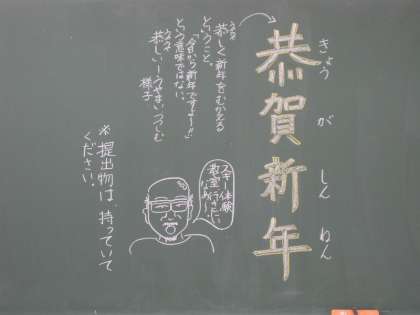 恭賀新年
きょうがしんねん
恭しく新年をむかえる
ということ。
「今日から新年ですよ〜!!」
という意味ではない。
恭しい…うやまいつつしむ
様子
スキー体験
教室
行きたい
なあ〜。
※提出物は、持っていて
ください。